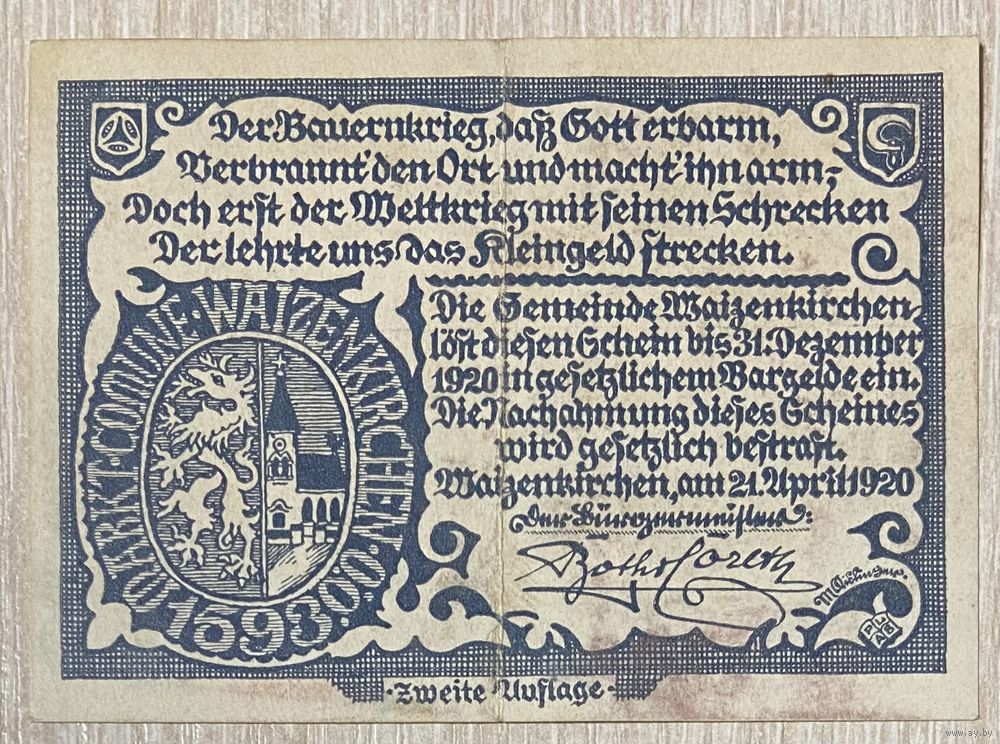 Der Bauernkrieg, daß Gott erbarm,
Verbrannt' den Ort und macht' ihn arm;
Doch erst der Weltkrieg mit seinen Schrecken
Der lehrte uns das Kleingeld strecken.
MARKT-COMUNE-WAIZENKIRCHEN·O.Ö.
1593
Die Gemeinde Waizenkirchen
löst diesen Schein bis 31. Dezember
1920 in gesetzlichem Bargelde ein.
Die Nachahmung dieses Scheines
wird gesetzlich bestraft.
Waizenkirchen, am 21. April 1920
Der Bürgermeister:
Botho Coreth
·Zweite Auflage·
www.ay.by